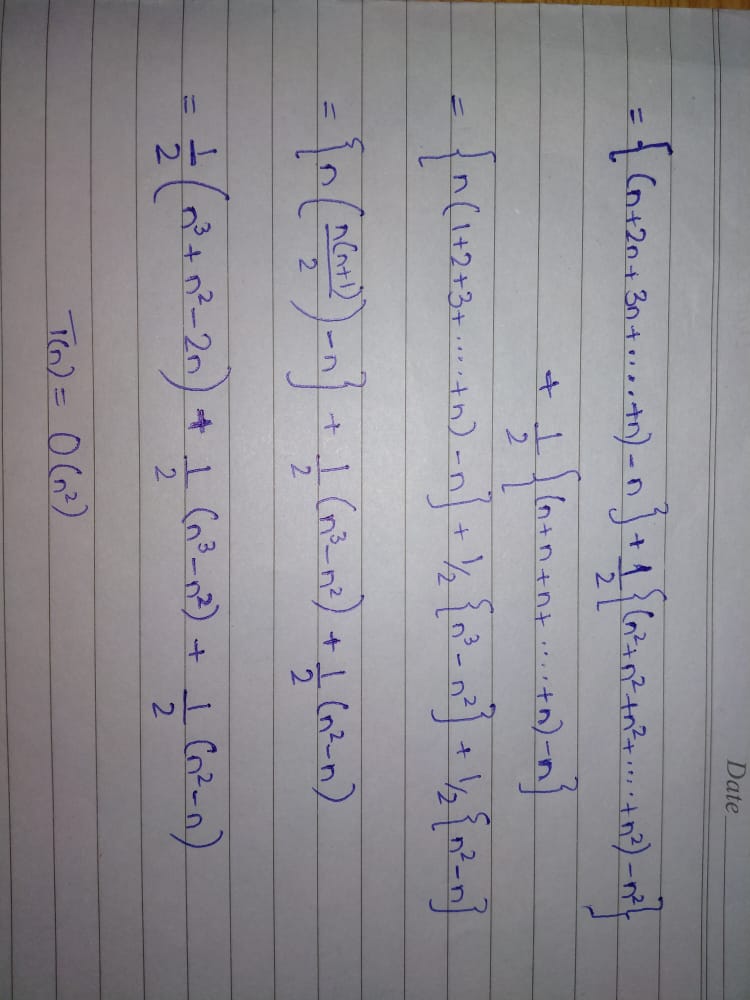 Date
= { (n+2n+3n+.....+n) - n } + 1/2 { (n²+n²+n²+.....+n²) - n² }
+ 1/2 { (n+n+n+.....+n) - n }
= { n(1+2+3+.....+n) - n } + 1/2 { n³ - n² } + 1/2 { n² - n }
= { n ( n(n+1)/2 ) - n } + 1/2 (n³ - n²) + 1/2 (n² - n)
= 1/2 ( n³ + n² - 2n ) + 1/2 (n³ - n²) + 1/2 (n² - n)
T(n) = O(n²)